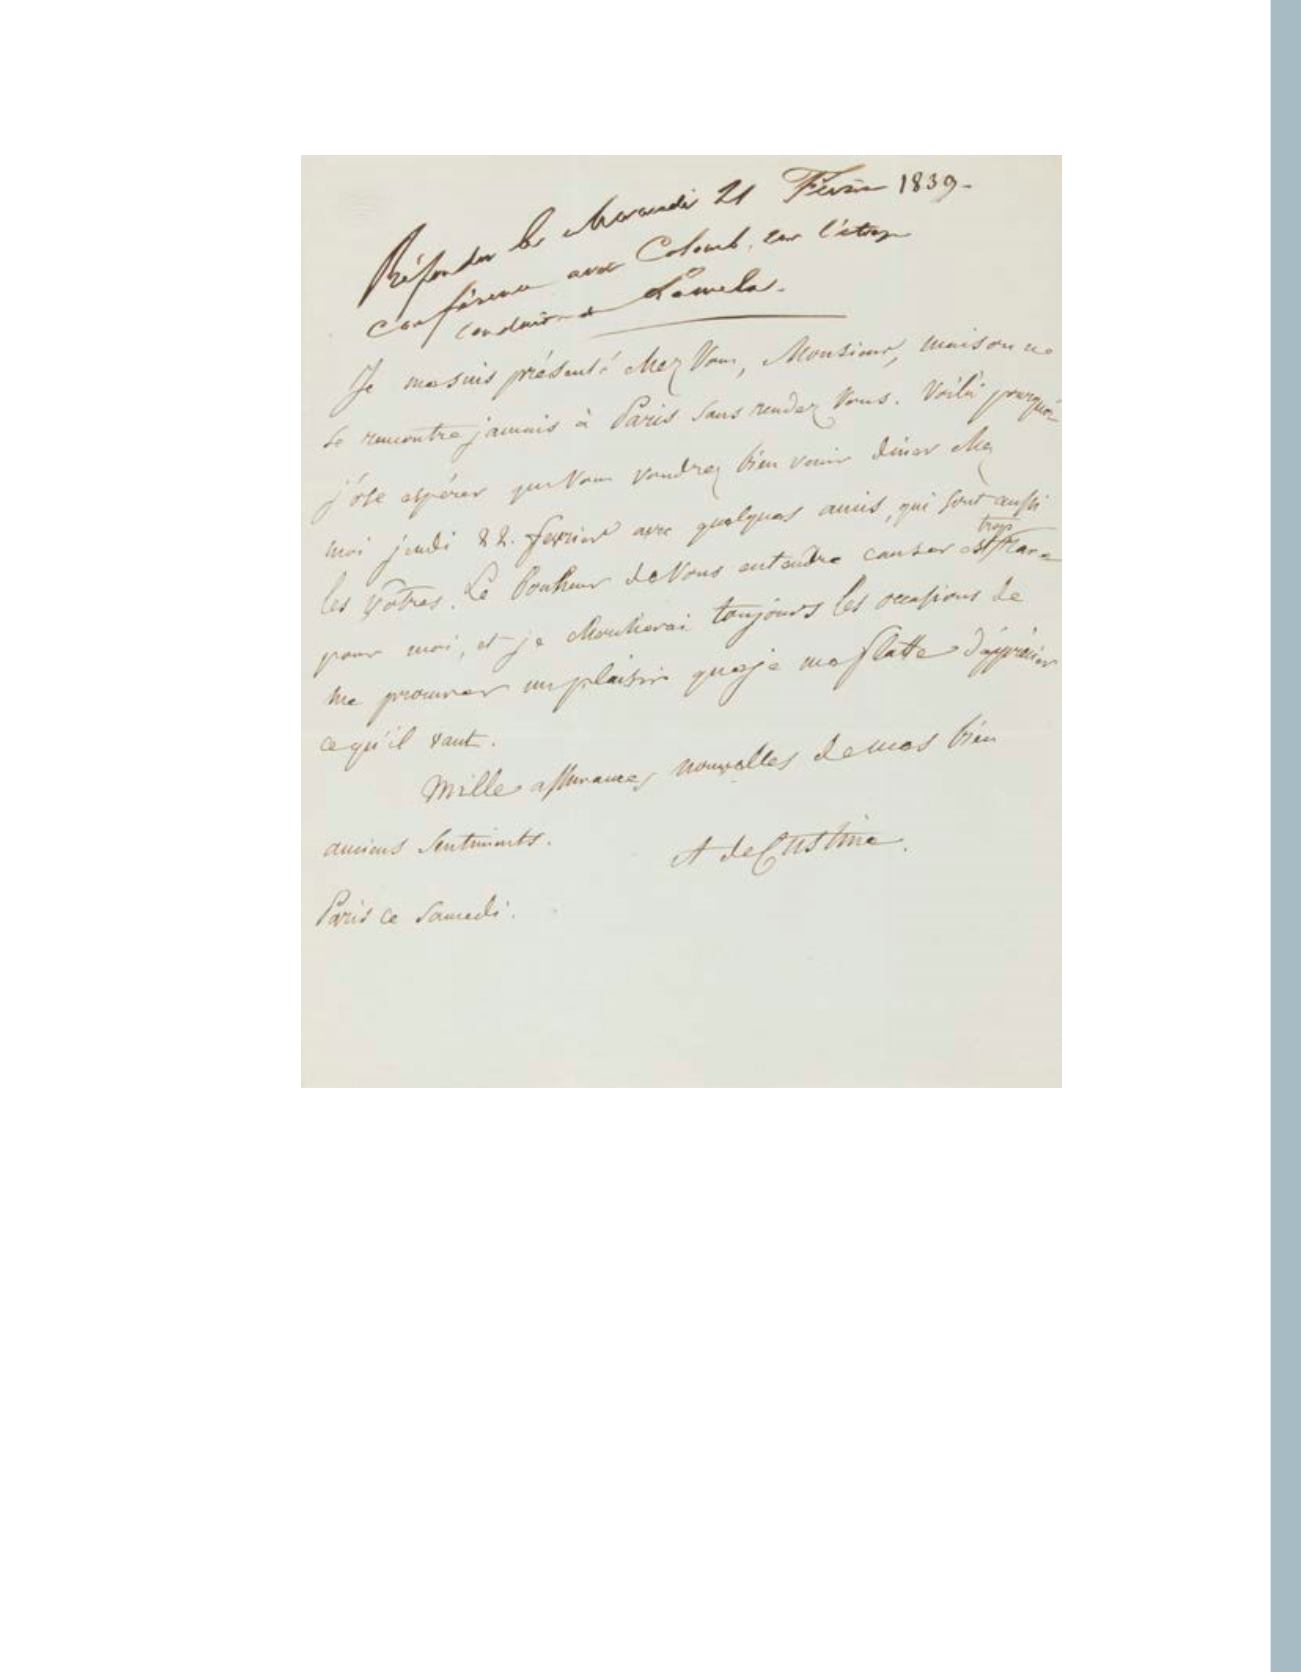 Répondu le Mercredi 21 Février 1839.
conférence avec Colomb, sur l'étrange
conduite de Paméla.
Je me suis présenté chez Vous, Monsieur, mais on ne
se rencontre jamais à Paris sans rendez Vous. Voilà pourquoi
j'ose espérer que Vous voudrez bien venir diner chez
moi jeudi 22. fevrier avec quelques amis, qui sont aussi
les vôtres. Le bonheur de Vous entendre causer est trop rare
pour moi, et je chercherai toujours les occasions de
me procurer un plaisir que je me flatte d'apprécier
ce qu'il vaut.
Mille assurances nouvelles de mes bien
anciens sentiments.
A de Custine.
Paris ce samedi.